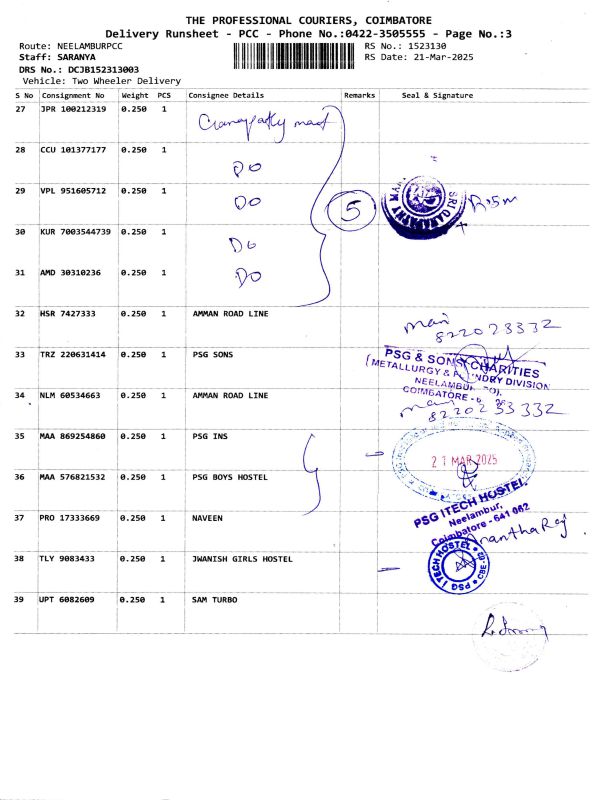 THE PROFESSIONAL COURIERS, COIMBATORE
Delivery Runsheet - PCC - Phone No.:0422-3505555 - Page No.:3
Route: NEELAMBURPCC RS No.: 1523130
Staff: SARANYA RS Date: 21-Mar-2025
DRS No.: DCJB152313003
Vehicle: Two Wheeler Delivery
S No Consignment No Weight PCS Consignee Details Remarks Seal & Signature
27 JPR 100212319 0.250 1
28 CCU 101377177 0.250 1 DO
29 VPL 951605712 0.250 1 DO 5
30 KUR 7003544739 0.250 1 DO
31 AMD 30310236 0.250 1 DO
32 HSR 7427333 0.250 1 AMMAN ROAD LINE mani
33 TRZ 220631414 0.250 1 PSG SONS
PSG & SONS CHARITIES
NEELAMBUR
COIMBATORE
34 NLM 60534663 0.250 1 AMMAN ROAD LINE mani
35 MAA 869254860 0.250 1 PSG INS
21 MAR 2025
36 MAA 576821532 0.250 1 PSG BOYS HOSTEL
PSG ITECH HOSTEL
Neelambur,
Coimbatore - 641 062
37 PRO 17333669 0.250 1 NAVEEN
38 TLY 9083433 0.250 1 JWANISH GIRLS HOSTEL
PSG I TECH HOSTEL
39 UPT 6082609 0.250 1 SAM TURBO